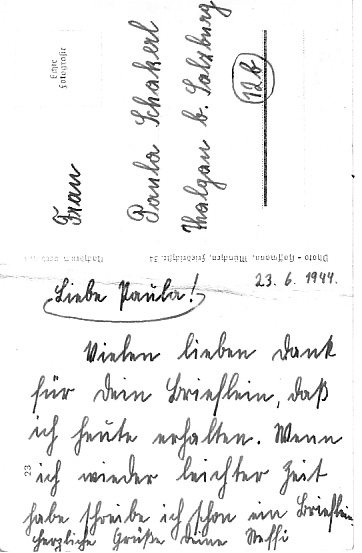 Echte
Fotografie
Frau
Paula Schakerl
Thalgau b. Salzburg
12b
Photo - Hoffmann, München, Friedrichstr. 34
Liebe Paula!
23. 6. 1944.
Vielen lieben Dank
für dein Brieflein, daß
ich heute erhalten. Wenn
ich wieder leichter Zeit
habe schreibe ich schon ein Brieflein
herzliche Grüße deine Steffi
23